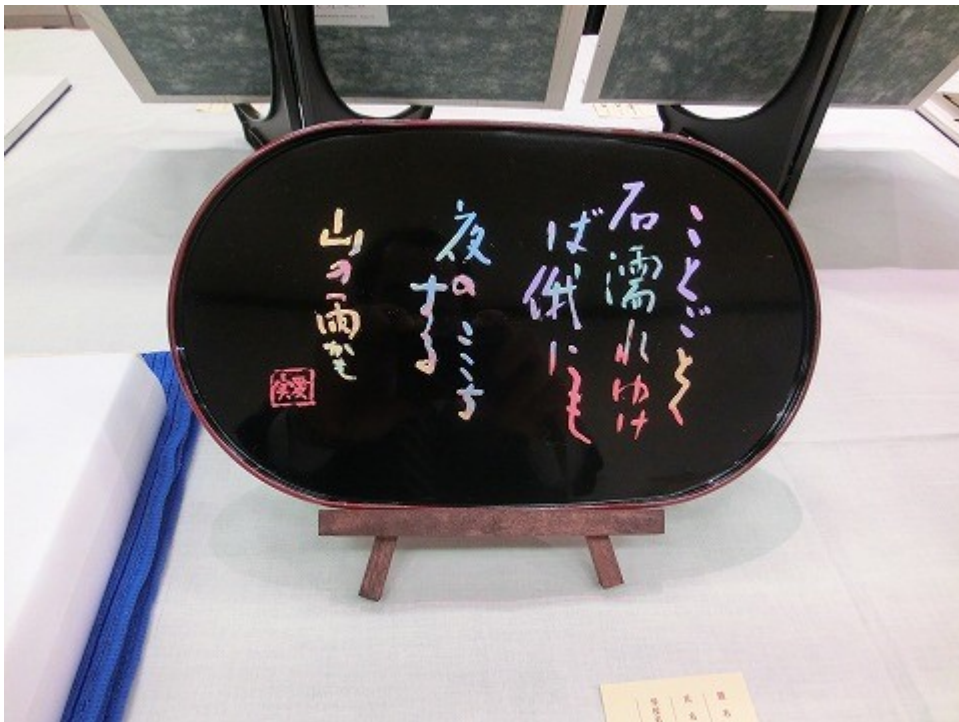 ことごとく
石濡れゆけ
ば俄にも
夜のこころ
する
山の雨かも
題名
氏名